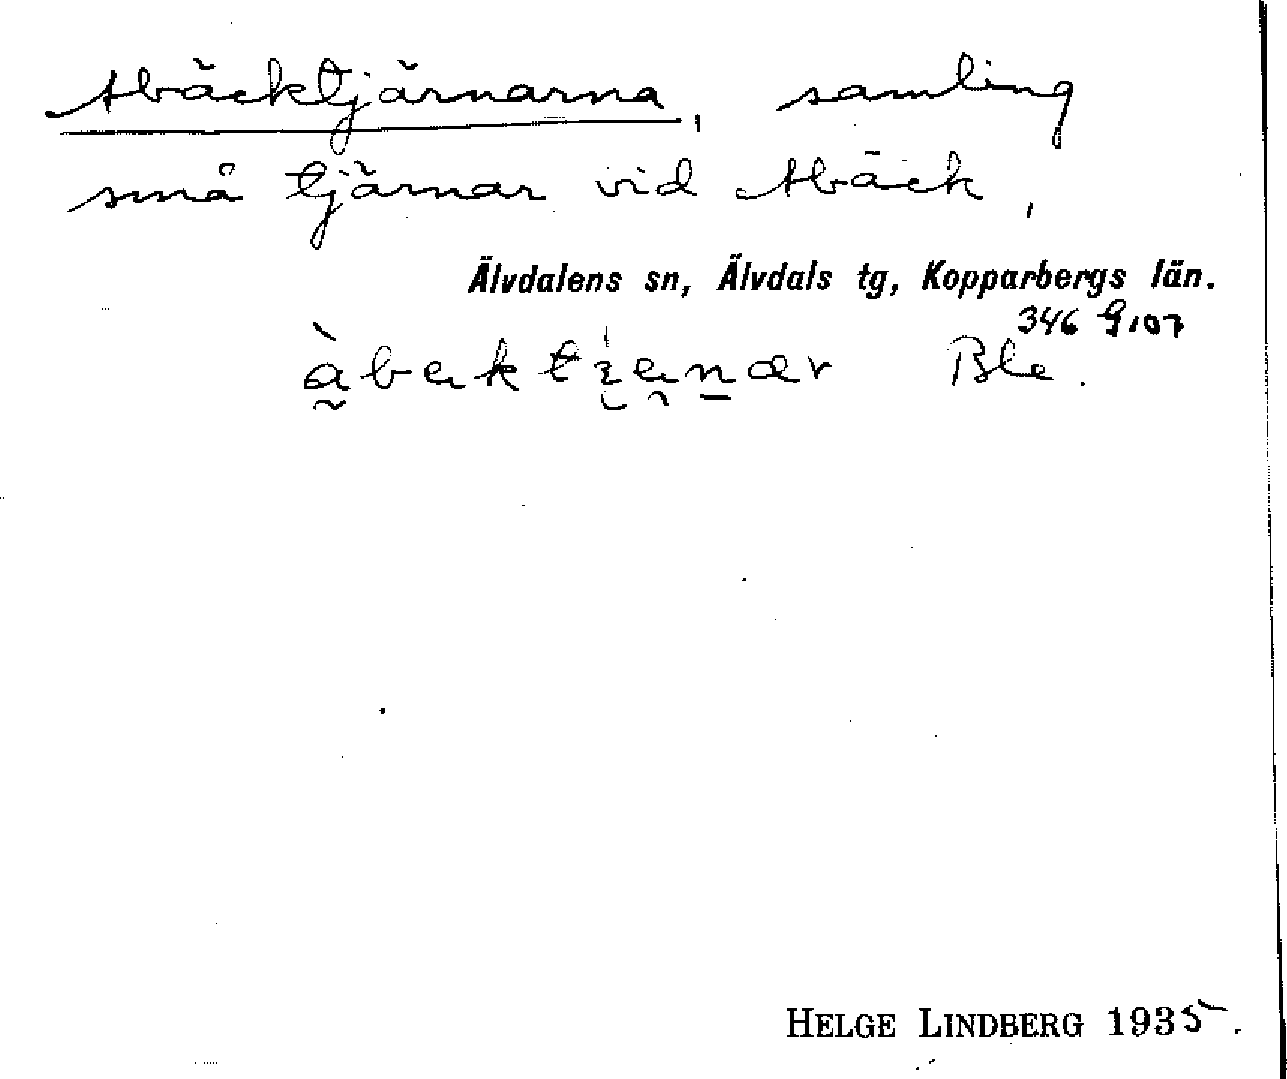 Abäcktjärnarna, samling
små tjärnar vid Abäck,
Älvdalens sn, Älvdals tg, Kopparbergs län.
346 G 107
Ble.
HELGE LINDBERG 1935.